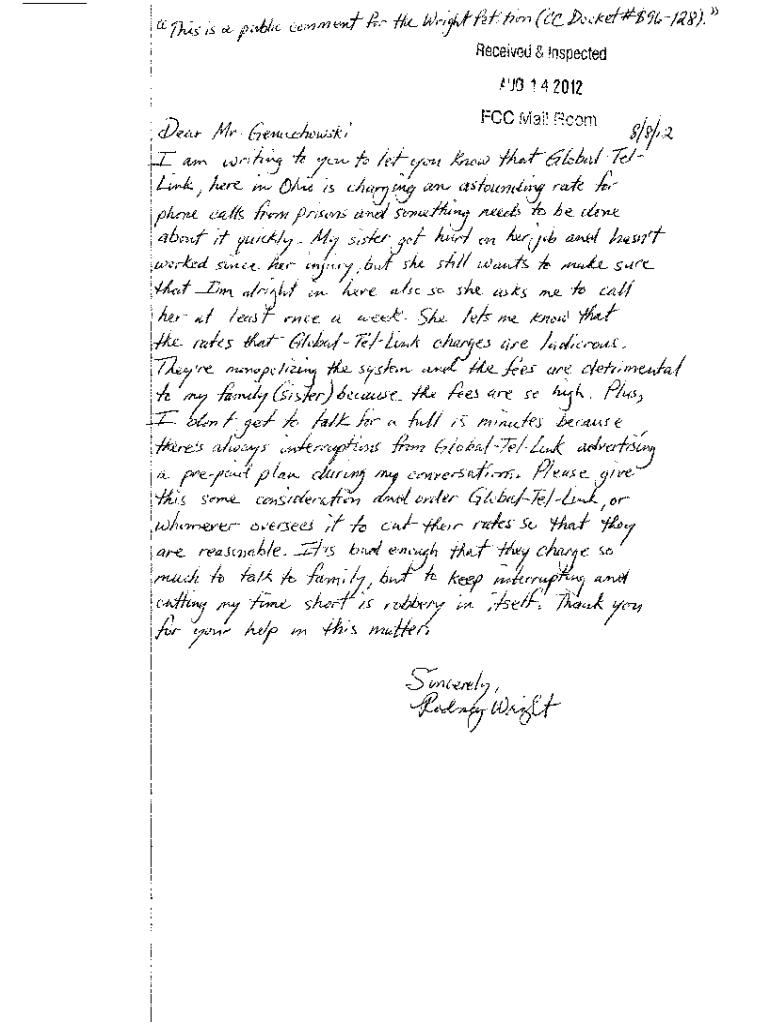 "This is a public comment for the Wright Petition (CC Docket # 96-128)."
Received & Inspected
AUG 14 2012
FCC Mail Room
8/8/12
Dear Mr. Genachowski
I am writing to you to let you know that Global-Tel-
Link, here in Ohio is charging an astounding rate for
phone calls from prisons and something needs to be done
about it quickly. My sister got hurt on her job and hasn't
worked since her injury, but she still wants to make sure
that I'm alright in here also so she asks me to call
her at least once a week. She lets me know that
the rates that Global-Tel-Link charges are ludicrous.
They're monopolizing the system and the fees are detrimental
to my family (sister) because the fees are so high. Plus,
I don't get to talk for a full 15 minutes because
there's always interruptions from Global-Tel-Link advertising
a pre-paid plan during my conversations. Please give
this some consideration and order Global-Tel-Link, or
whomever oversees it to cut their rates so that they
are reasonable. It is bad enough that they charge so
much to talk to family, but to keep interrupting and
cutting my time short is robbery in itself. Thank you
for your help in this matter.
Sincerely,
Rodney Wright